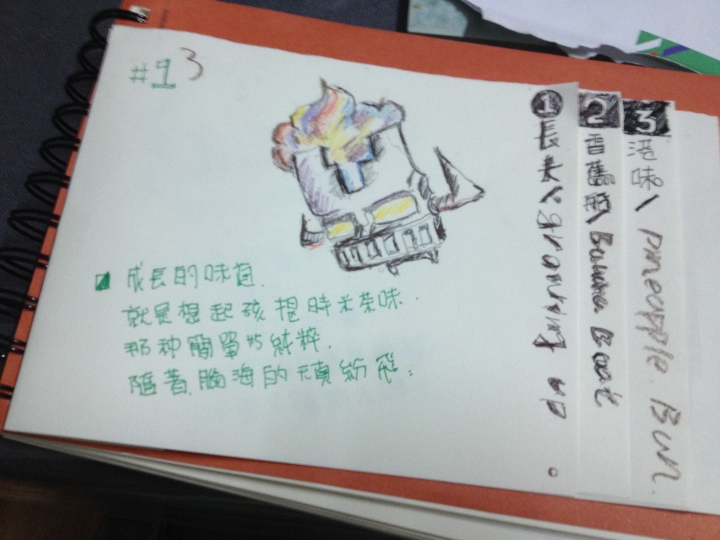 #13
成長的味道.
就是想起孩提時米茶味.
那种簡單的純粹.
隨著腦海的 紛飛.
1 長大\growing up.
2 香蕉船\Banana Boat
3 港味\pineapple Bun.